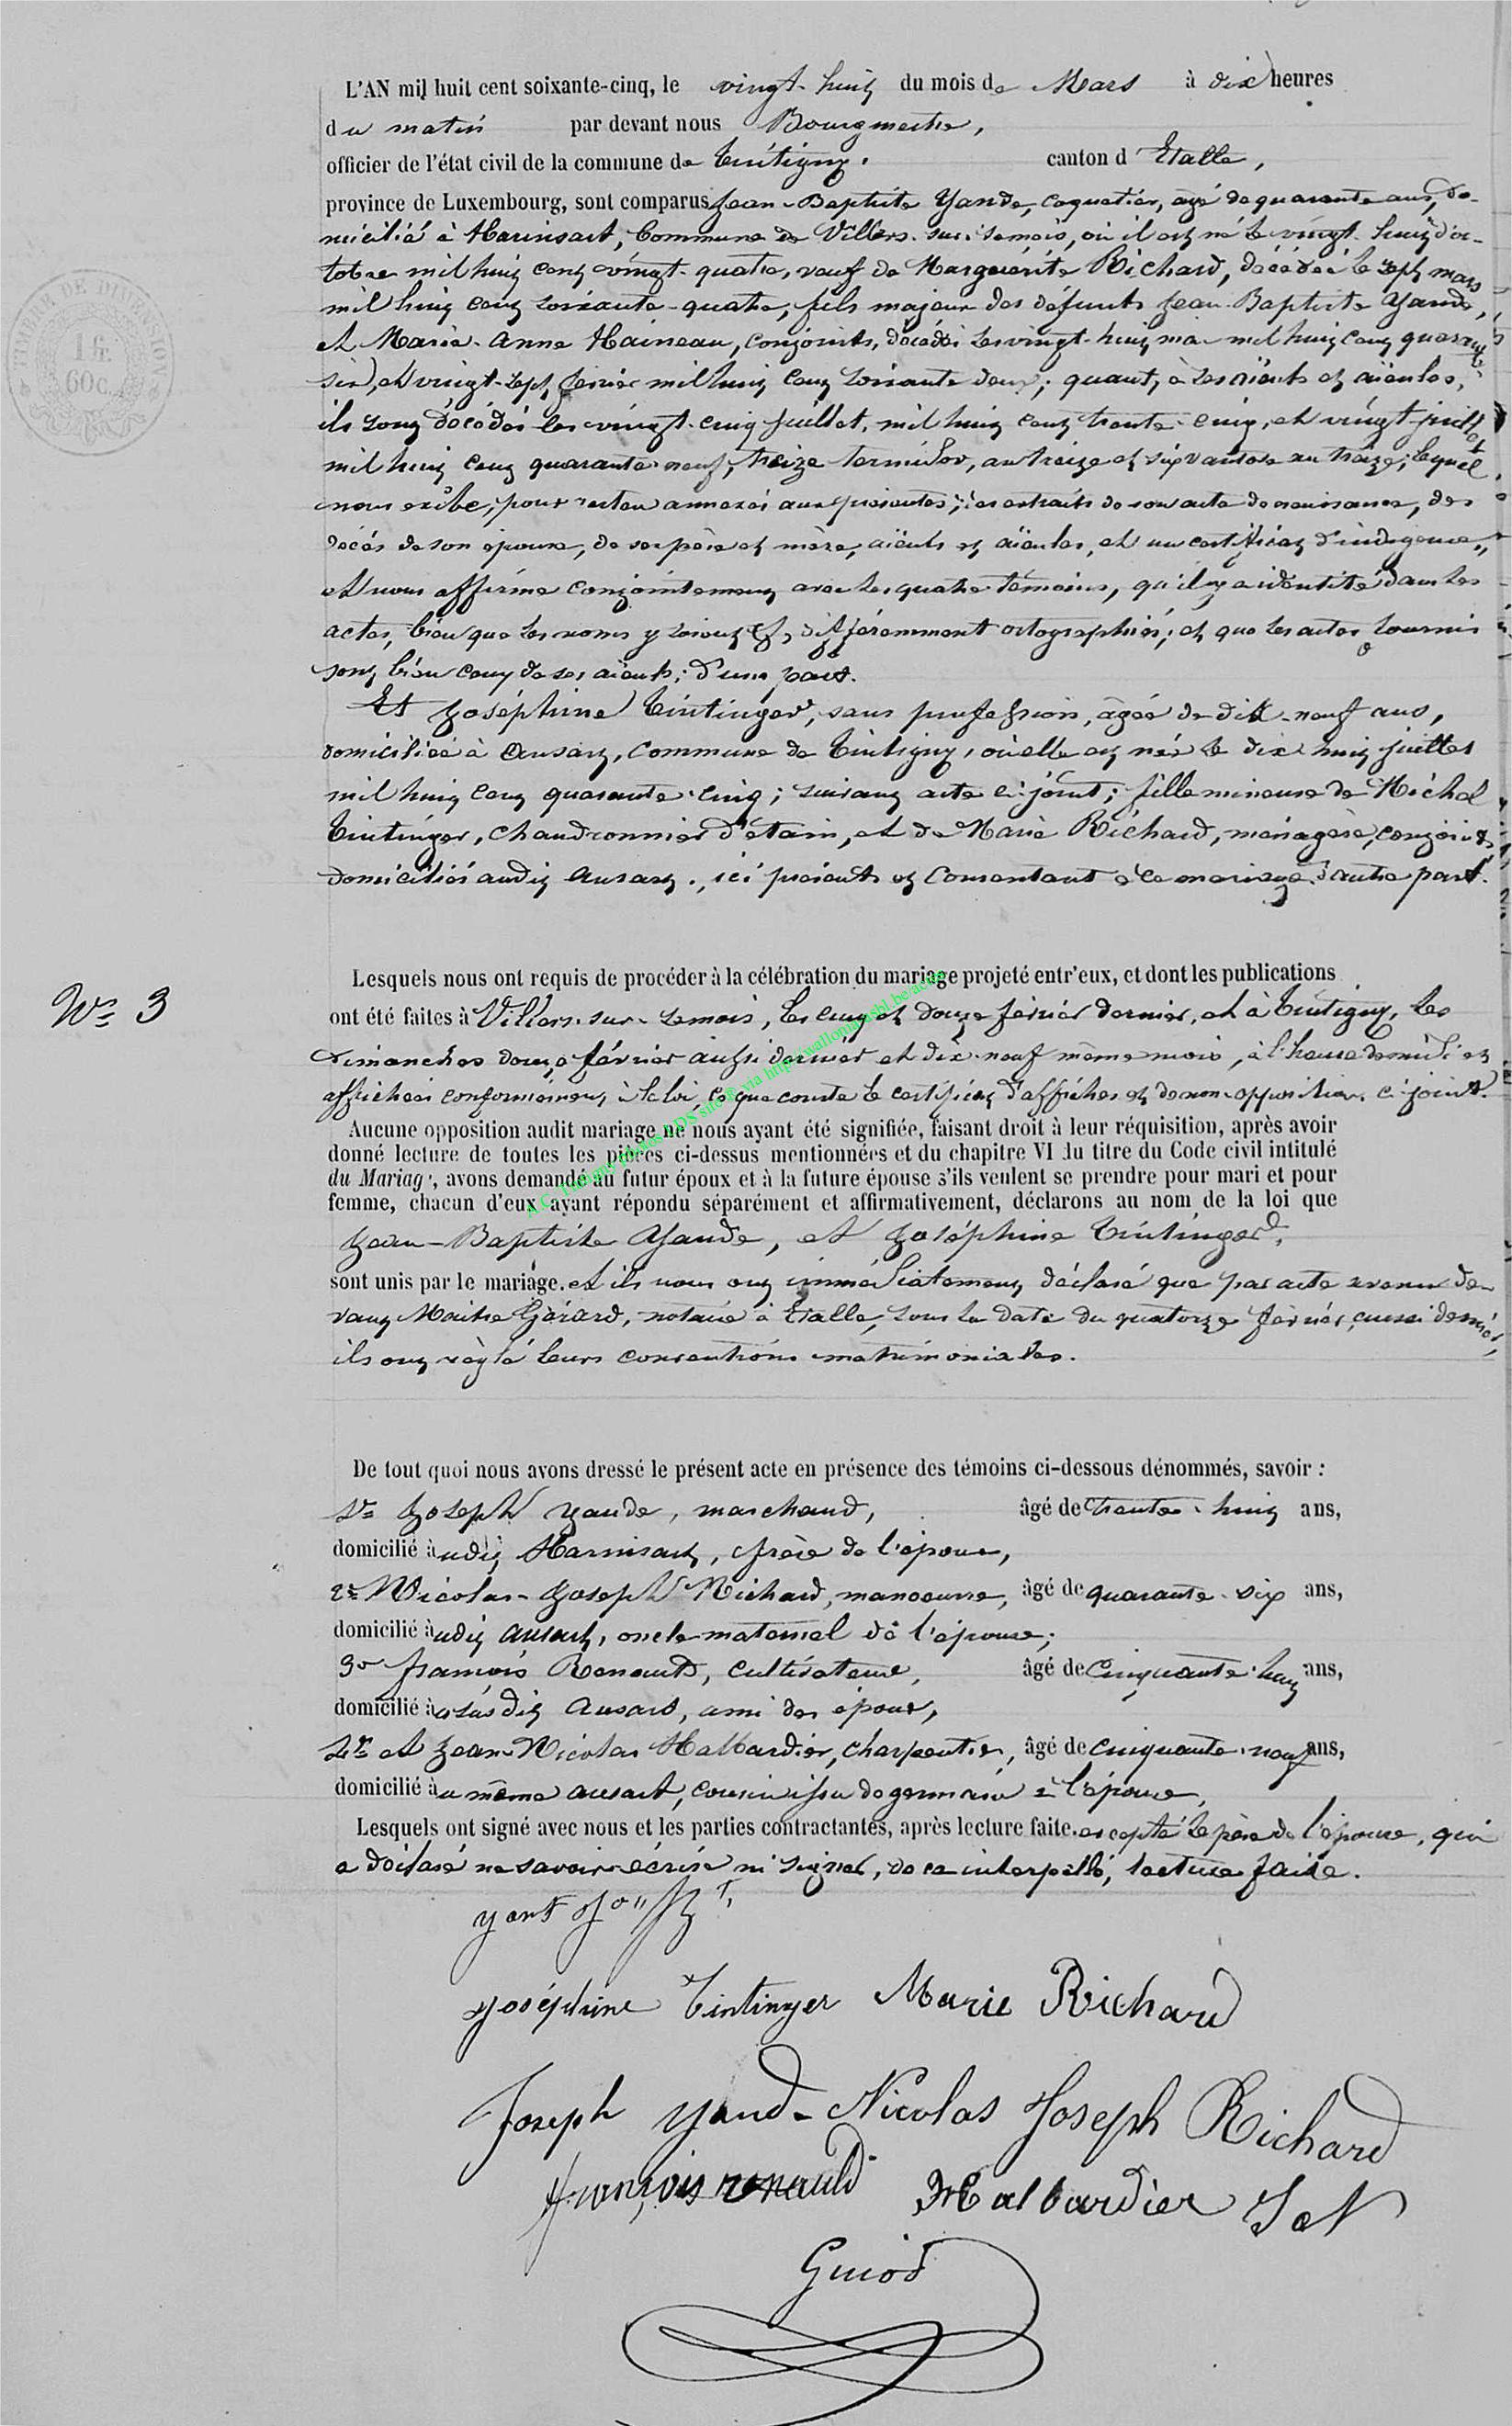 L'AN mil huit cent soixante-cinq, le vingt-huit du mois de Mars à dix heures
du matin par devant nous Bourgmestre,
officier de l'état civil de la commune de Tintigny. canton d'Etalle,
province de Luxembourg, sont comparus Jean-Baptiste Yande, coquetier, agé de quarante ans, do-
micilié à Harinsart, Commune de Villers-sur-Semois, où il est né le vingt-huit d'oc-
tobre mil huit cent vingt-quatre, veuf de Marguérite Richard, décédée le sept mars
mil huit cent soixante-quatre, fils majeur des défunts Jean-Baptiste Yande,
et Marie-Anne Haineau, conjoints, décédés les vingt-huit mai mil huit cent quarante
six, et vingt-sept février mil huit cent soixante deux; quant, à ses aïeuls et aïeules,
ils sont décédés les vingt-cinq juillet, mil huit cent trente-cinq, et vingt juillet
mil huit cent quarante-neuf, treize termidor, an treize et six ventose an treize; lequel
nous exibe, pour rester annexés aux présentes, les extraits de son acte de naissance, des
décés de son épouse, de ses père et mère, aïeuls et aïeules, et un certificat d'indigence,
et nous affirme conjointement avec les quatre témoins, qu'il y a identité dans les
actes, bien que les noms y soient différemment ortographiés; et que les actes fournis
sont bien ceux de ses aïeuls; d'une part.
Et Joséphine Tintinger, sans profession, âgée de dix-neuf ans,
domiciliée à Ansart, commune de Tintigny, où elle est née le dix-huit juillet
mil huit cent quarante-cinq; suivant acte ci-joint; fille mineure de Michel
Tintinger, chaudronnier d'étain, et de Marie Richard, ménagère, conjoints
domiciliés audit Ansart, ici présents et consentant à ce mariage d'autre part.
Lesquels nous ont requis de procéder à la célébration du mariage projeté entr'eux, et dont les publications
N° 3
ont été faites à Villers-sur-Semois, les cinq et douze février dernier, et à Tintigny, les
dimanches douze février aussi dernier et dix-neuf même mois, à l'heure de midi et
affichées conformément à la loi, ce que conste le certificat d'affiches et de non-opposition ci-joint.
Aucune opposition audit mariage ne nous ayant été signifiée, faisant droit à leur réquisition, après avoir
donné lecture de toutes les pièces ci-dessus mentionnées et du chapitre VI du titre du Code civil intitulé
du Mariage, avons demandé au futur époux et à la future épouse s'ils veulent se prendre pour mari et pour
femme, chacun d'eux ayant répondu séparément et affirmativement, déclarons au nom de la loi que
Jean-Baptiste Yande, et Joséphine Tintinger,
sont unis par le mariage. et ils nous ont immédiatement déclaré que par acte avenu de-
vant Maitre Gérard, notaire à Etalle, sous la date du quatorze février, aussi dernier,
ils ont réglé leurs conventions matrimoniales.
De tout quoi nous avons dressé le présent acte en présence des témoins ci-dessous dénommés, savoir :
1° Joseph Yande, marchand, âgé de trente-huit ans,
domicilié audit Harinsart, frère de l'époux,
2° Nicolas-Joseph Richard, manoeuvre, âgé de quarante-six ans,
domicilié audit Ansart, oncle maternel de l'épouse;
3° François Renauld, cultivateur, âgé de cinquante-huit ans,
domicilié à susdit Ansart, ami des époux,
4° et Jean-Nicolas Halbardier, charpentier, âgé de cinquante-neuf ans,
domicilié au même Ansart, cousin issu de germain à l'épouse,
Lesquels ont signé avec nous et les parties contractantes, après lecture faite. excepté le père de l'épouse, qui
a déclaré ne savoir écrire ni signer, de ce interpellé, lecture faite.
Joséphine Tintinger Marie Richard
Joseph Yand- Nicolas Joseph Richard
françois renauld Halbardier J N
Guiod